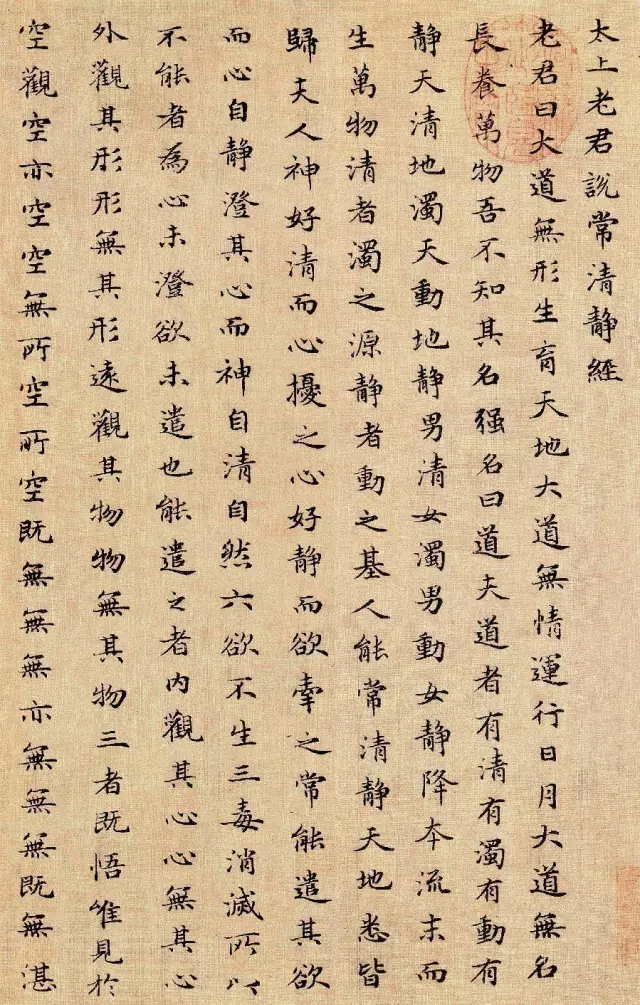 太上老君說常清静經
老君曰大道無形生育天地大道無情運行日月大道無名
長養萬物吾不知其名强名曰道夫道者有清有濁有動有
静天清地濁天動地静男清女濁男動女静降本流末而
生萬物清者濁之源静者動之基人能常清静天地悉皆
歸夫人神好清而心擾之心好静而欲牽之常能遣其欲
而心自静澄其心而神自清自然六欲不生三毒消滅所以
不能者為心未澄欲未遣也能遣之者内觀其心心無其心
外觀其形形無其形遠觀其物物無其物三者既悟唯見於
空觀空亦空空無所空所空既無無無亦無無無既無湛